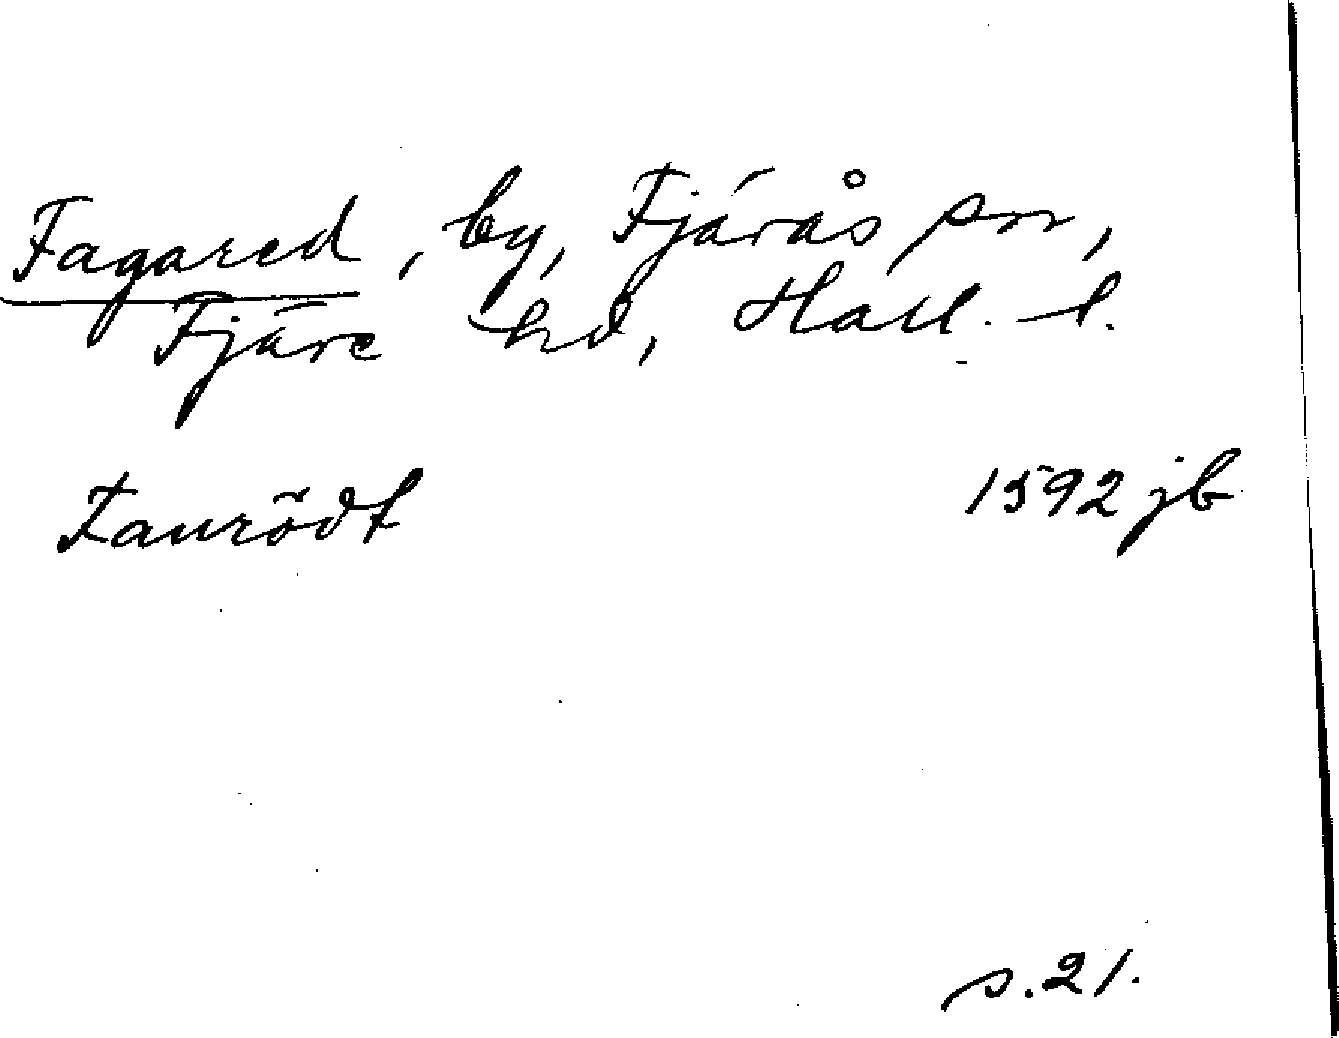 Fagared, by, Fjärås sn,
Fjäre hd, Hall. l.
Faurödt 1592 jb
s. 21.